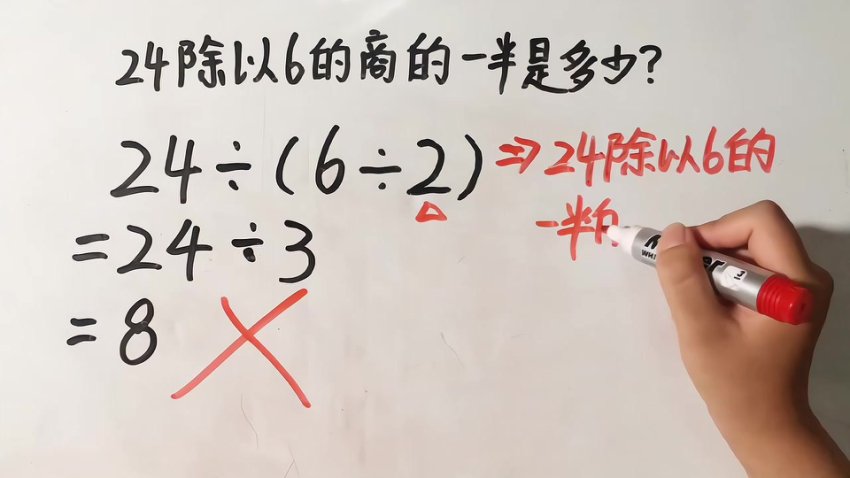 24除以6的商的一半是多少?
24÷(6÷2)⇒24除以6的
一半
=24÷3
=8